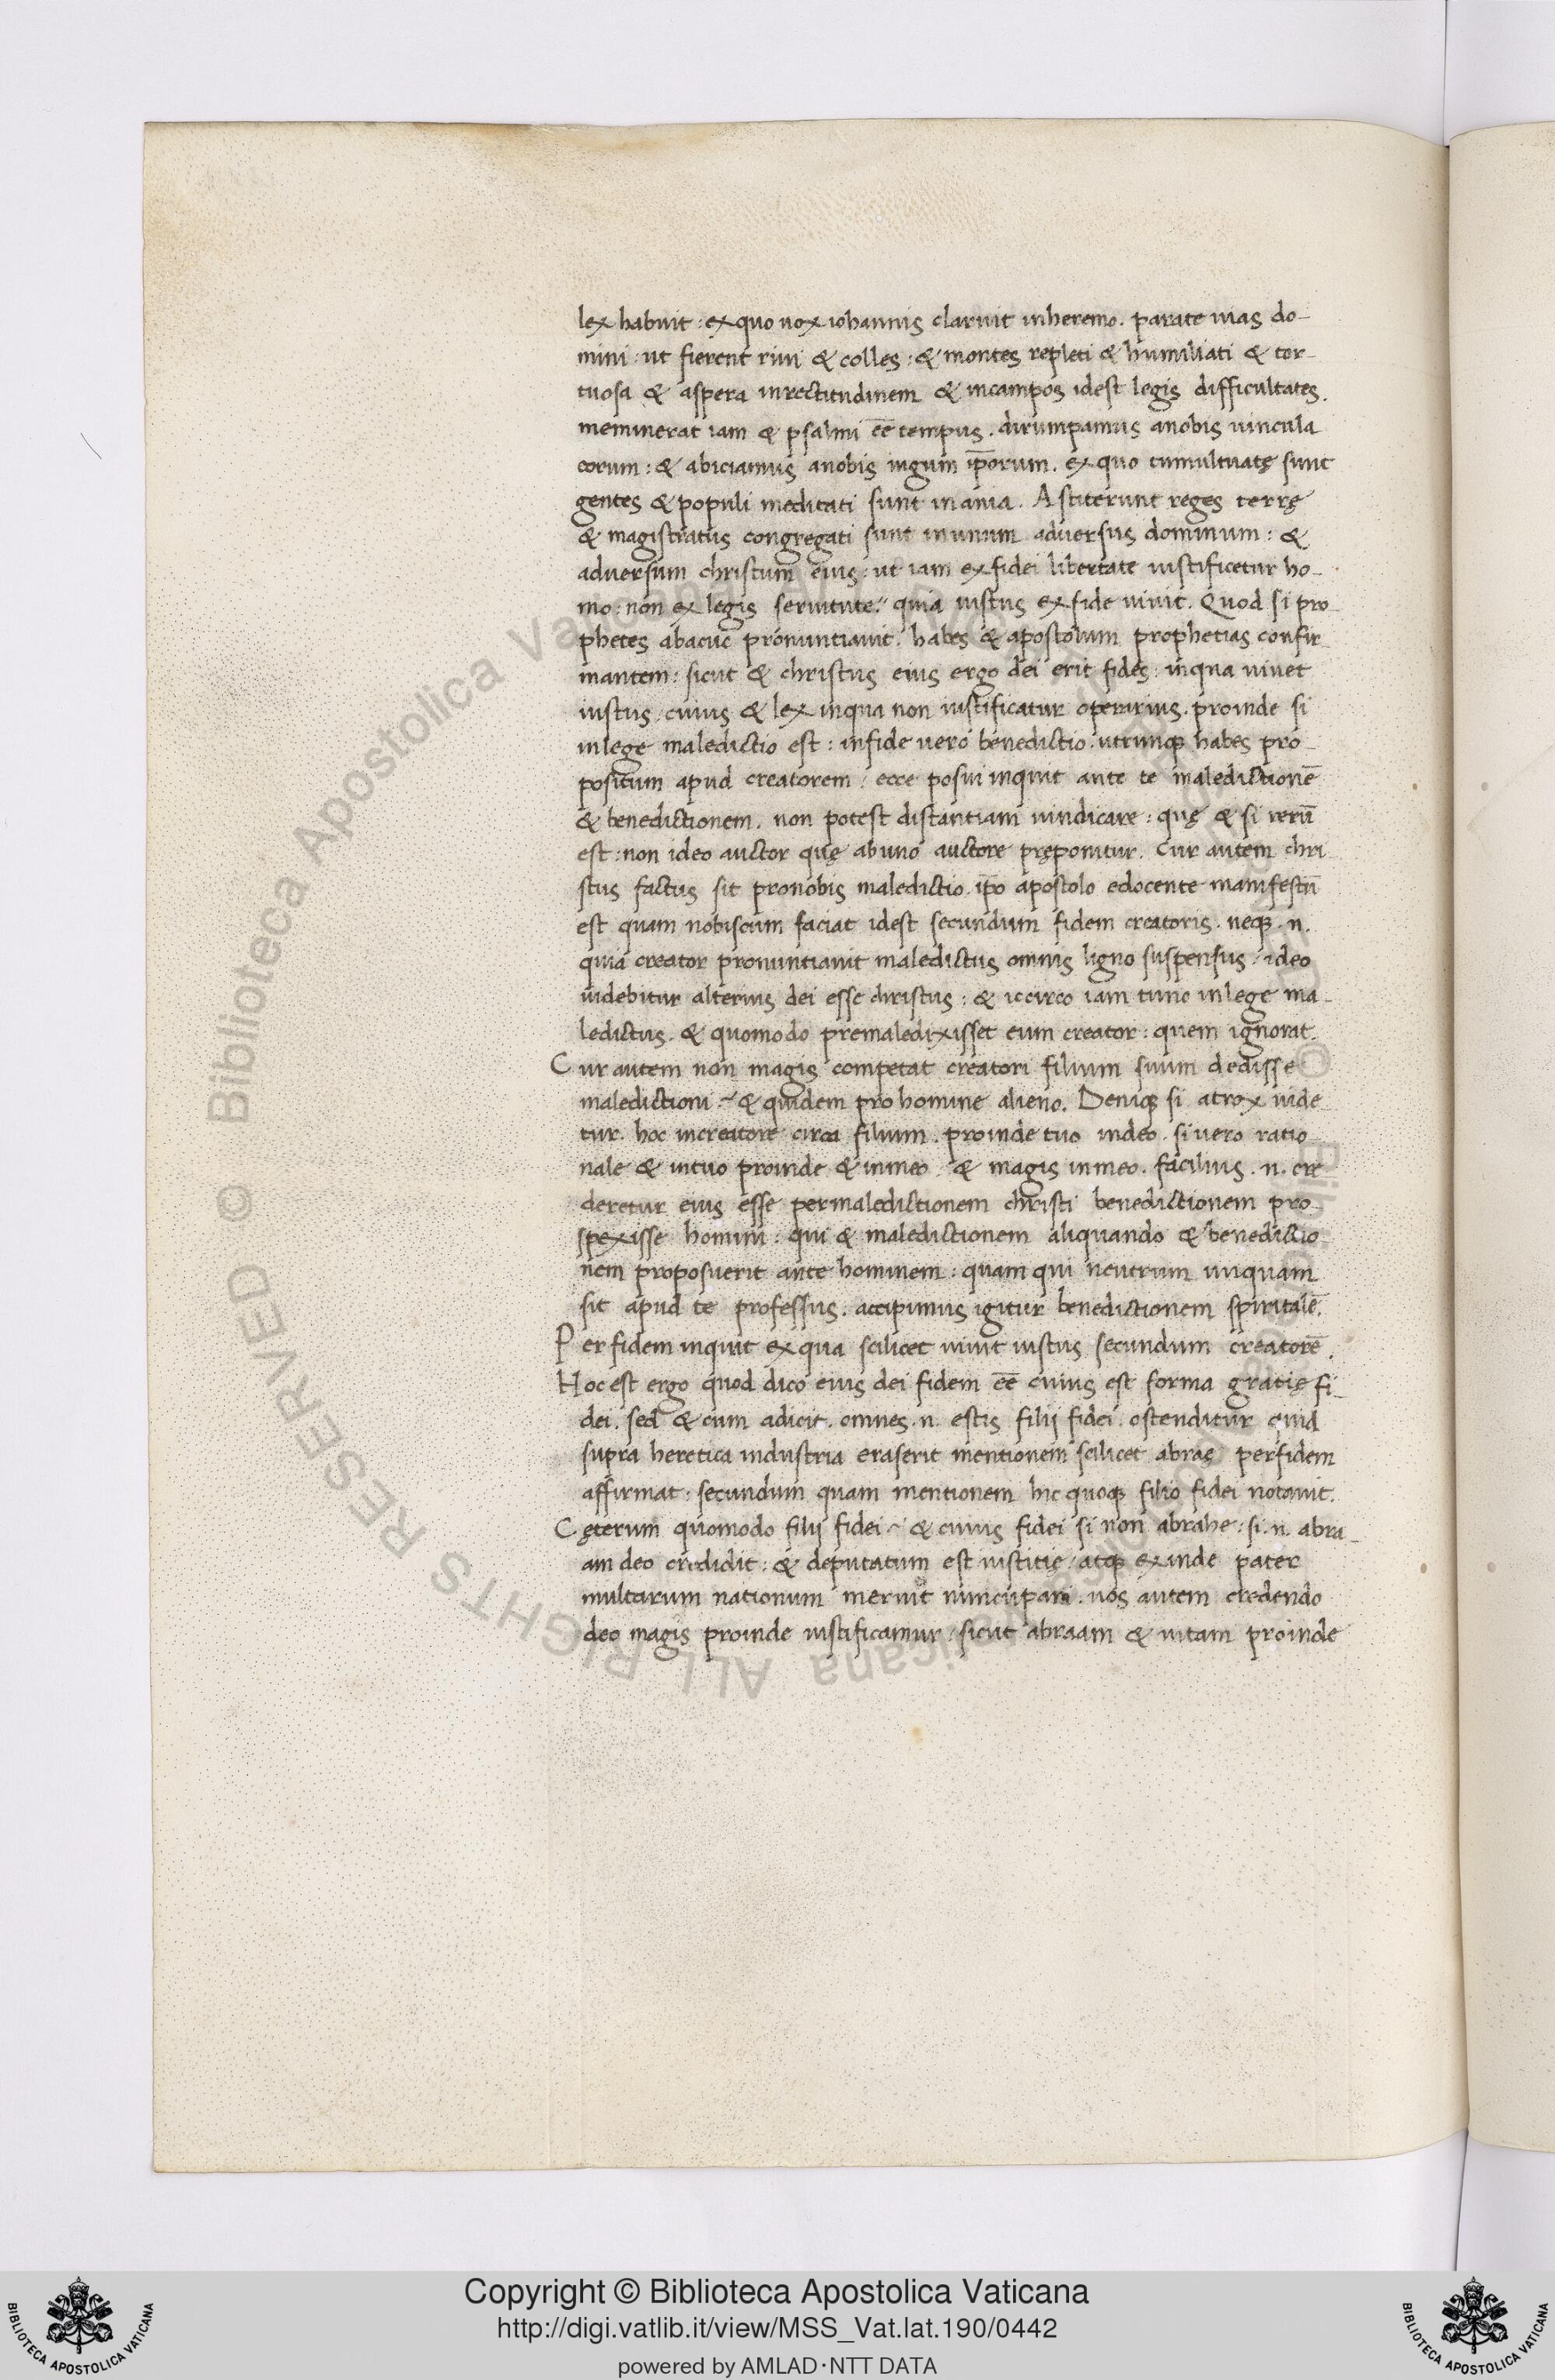 lex habuit : ex quo uox iohannis claruit inheremo . parate uias do-
mini : ut fierent riui & colles : & montes repleti & humiliati & tor-
tuosa & aspera inrectitudinem & incampos idest legis difficultates .
meminerat iam & psalmi eē tempus . dirumpamus anobis uincula
eorum : & abiciamus anobis iugum ip̄orum . ex quo tumultuatę sunt
gentes & populi meditati sunt inania . Astiterunt reges terrę
& magistratus congregati sunt inunum adversus dominum : &
adversum christum eius : ut iam exfidei libertate iustificetur ho-
mo : non ex legis seruitute : quia iustus exfide uiuit . Quod si pro-
phetes abacuc pronuntiauit . habes & apostolum prophetias confir-
mantem : sicut & christus eius ergo dei erit fides : inqua uiuet
iustus : cuius & lex inqua non iustificatur operarius . proinde si
inlege maledictio est : infide uero benedictio . utrunqꝫ habes pro-
positum apud creatorem : ecce posui inquit ante te maledictionē
& benedictionem . non potest distantiam uindicare : quę & si rerū
est : non ideo auctor quę abuno auctore pręponitur . Cur autem chri
stus factus sit pronobis maledictio . ip̄o apostolo edocente manifestū
est quam nobiscum faciat idest secundum fidem creatoris . neqꝫ . n .
quia creator pronuntiauit maledictus omnis ligno suspensus : ideo
uidebitur alterius dei esse christus : & iccirco iam tunc inlege ma-
ledictus . & quomodo premaledixisset eum creator : quem ignorat .
Cur autem non magis competat creatori filium suum dedisse
maledictioni ~ & quidem pro homine alieno . Deniqꝫ si atrox uide
tur . hoc increatore circa filium . proinde tuo indeo . si uero ratio-
nale & intuo proinde & inmeo . & magis inmeo . facilius . n . cre
deretur eius esse permaledictionem christi benedictionem pro-
spexisse homini : qui & maledictionem aliquando & benedictio
nem proposuerit ante hominem : quam qui neutrum unquam
sit apud te professus . accipimus igitur benedictionem spiritalē .
Per fidem inquit ex qua scilicet uiuit iustus secundum creatorē .
Hoc est ergo quod dico eius dei fidem eē cuius est forma gratię fi-
dei . sed & cum adicit . omnes . n . estis filij fidei . ostenditur quid
supra heretica industria eraserit mentionem scilicet abraę perfidem
affirmat : secundum quam mentionem hic quoqꝫ filio fidei notauit .
Cęterum quomodo filij fidei ~ & cuius fidei si non abrahe : si . n . abra-
am deo credidit : & deputatum est iustitię : atqꝫ exinde pater
multarum nationum meruit nuncupari . nos autem credendo
deo magis proinde iustificamur : sicut abraam & uitam proinde
Copyright © Biblioteca Apostolica Vaticana
http://digi.vatlib.it/view/MSS_Vat.lat.190/0442
powered by AMLAD·NTT DATA